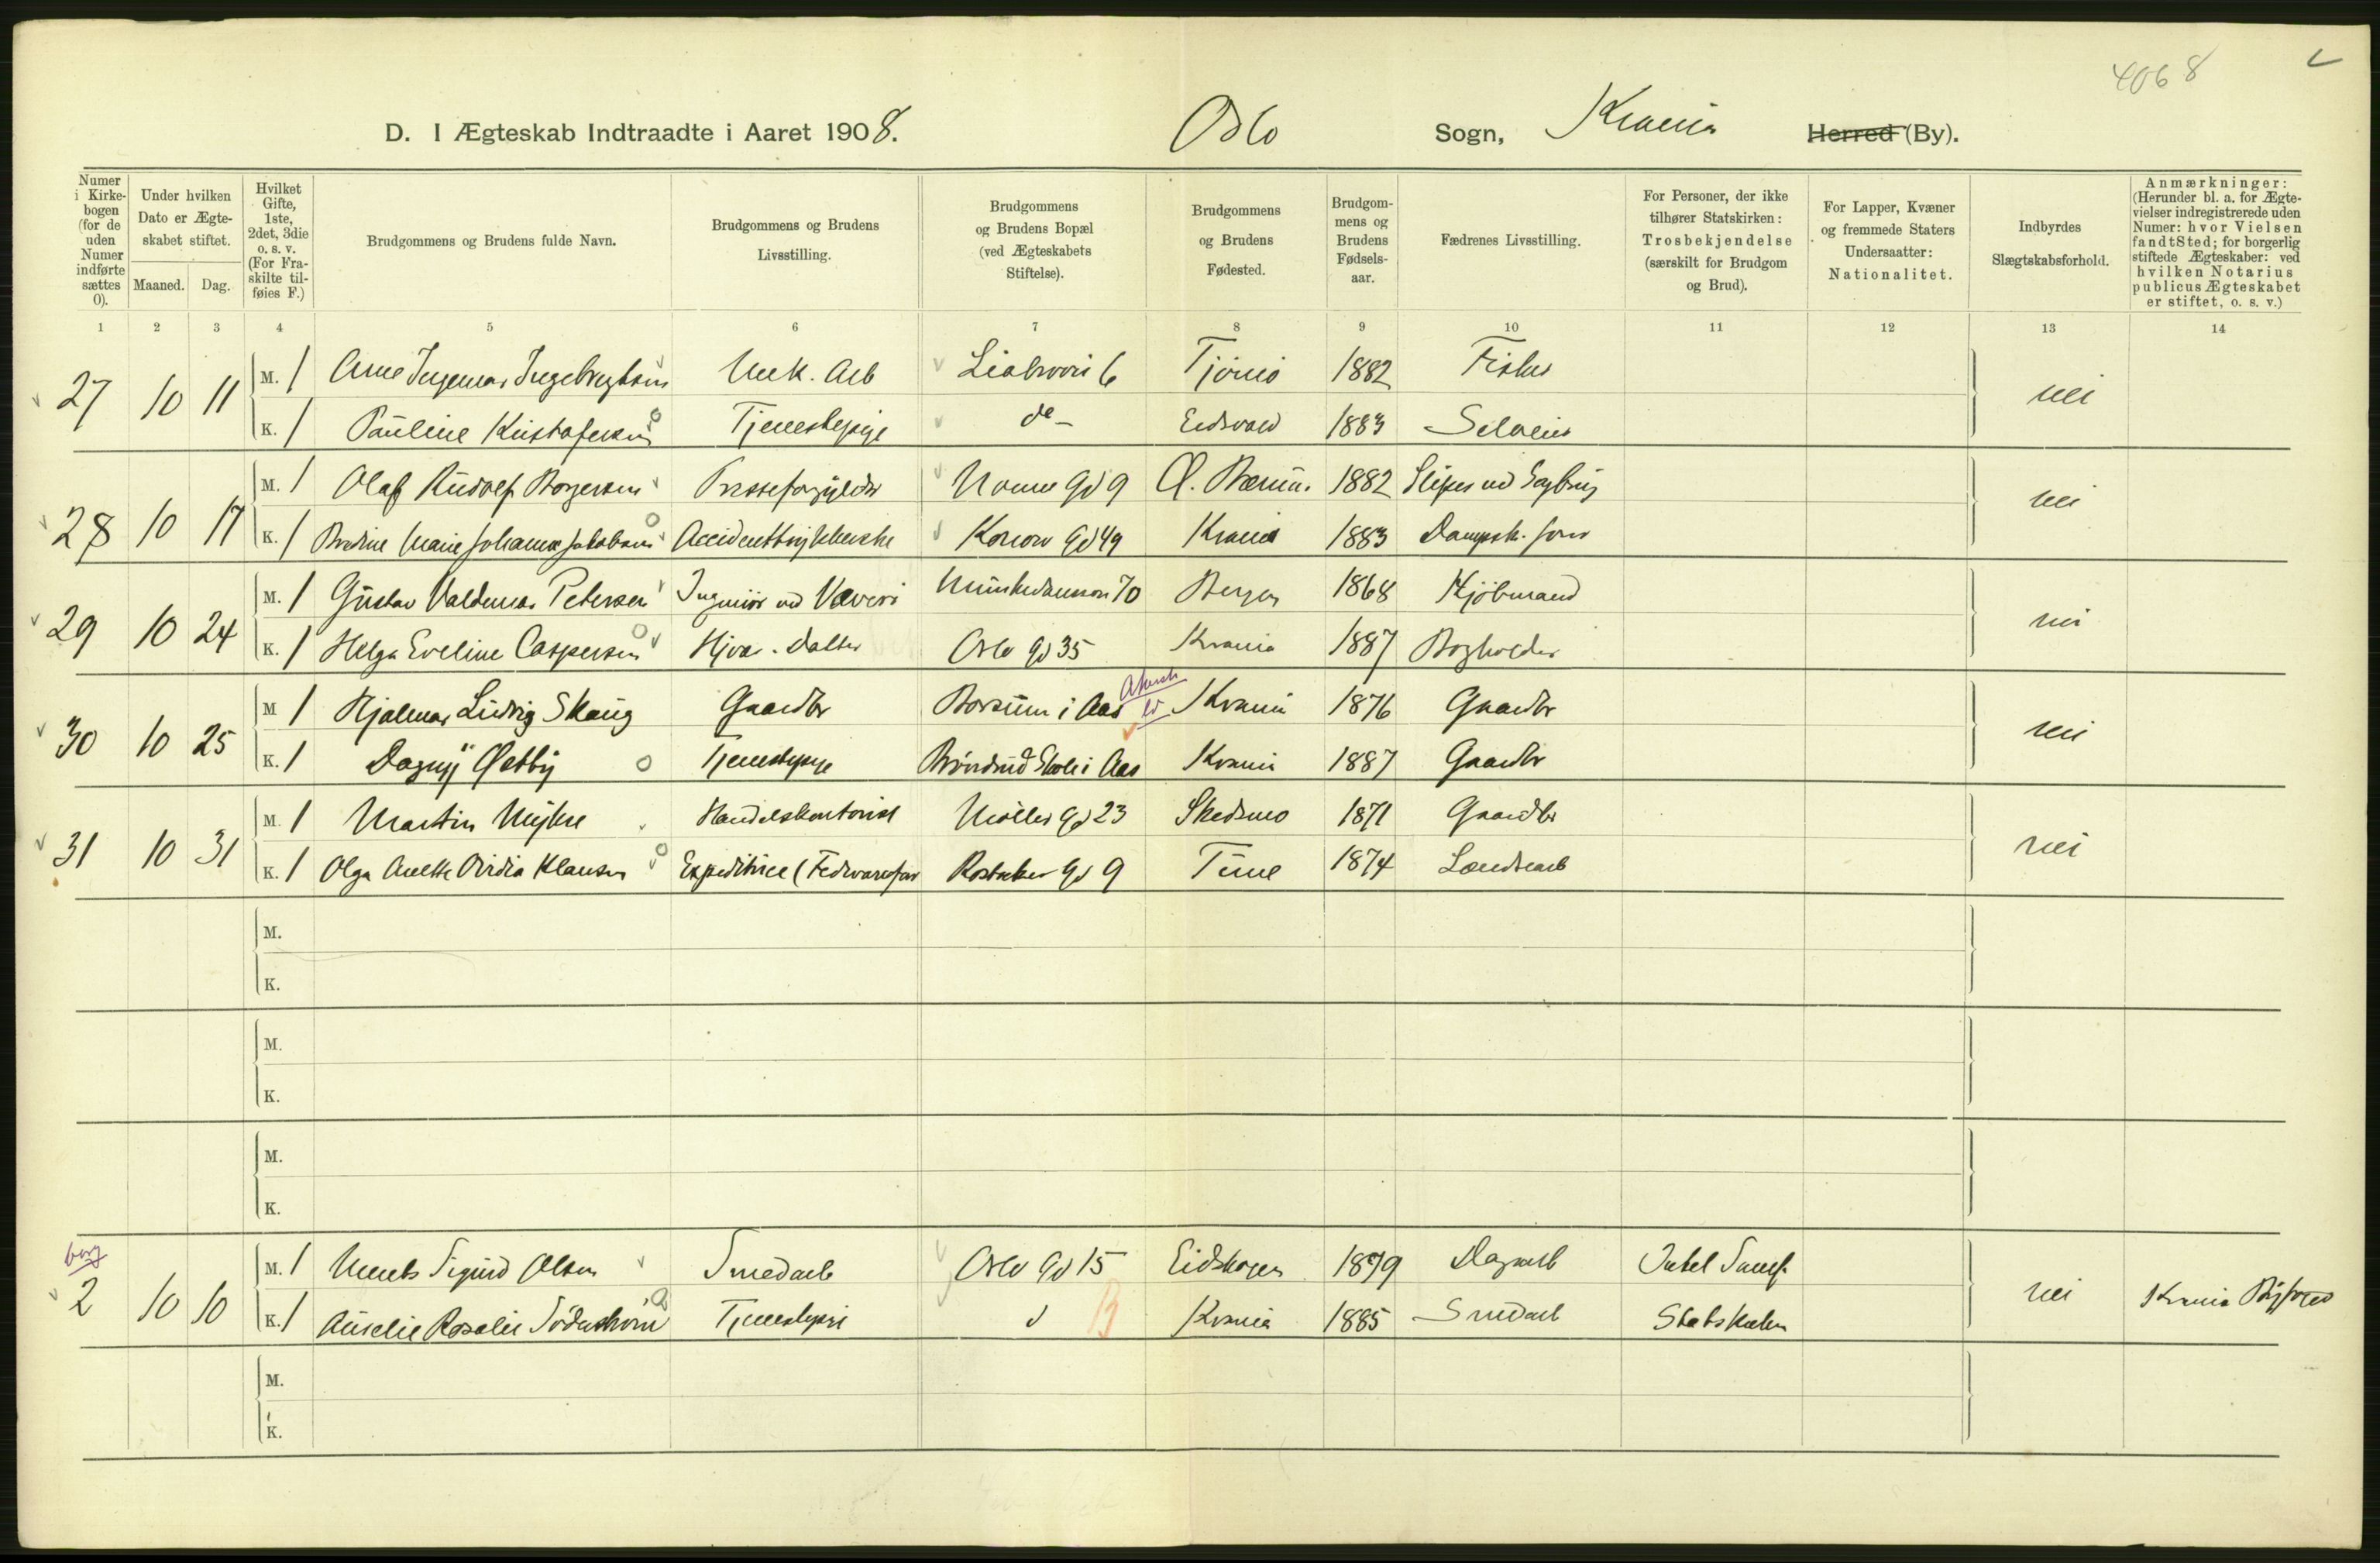 4068
D. I Ægteskab Indtraadte i Aaret 1908. Oslo Sogn, Krania Herred (By).
Numer i Kirke-bogen (for de uden Numer indførte sættes 0).
Under hvilken Dato er Ægte-skabet stiftet.
Maaned. Dag.
Hvilket Gifte, 1ste, 2det, 3die o. s. v. (For Fra-skilte til-føies F.)
Brudgommens og Brudens fulde Navn.
Brudgommens og Brudens Livsstilling.
Brudgommens og Brudens Bopæl (ved Ægteskabets Stiftelse).
Brudgommens og Brudens Fødested.
Brudgom-mens og Brudens Fødsels-aar.
Fædrenes Livsstilling.
For Personer, der ikke tilhører Statskirken: Trosbekjendelse (særskilt for Brudgom og Brud).
For Lapper, Kvæner og fremmede Staters Undersaatter: Nationalitet.
Indbyrdes Slægtskabsforhold.
Anmærkninger: (Herunder bl. a. for Ægte-vielser indregistrerede uden Numer: hvor Vielsen fandt Sted; for borgerlig stiftede Ægteskaber: ved hvilken Notarius publicus Ægteskabet er stiftet, o. s. v.)
1 2 3 4 5 6 7 8 9 10 11 12 13 14
27 10 11 M. 1 Arne Ingemar Ingebrigtsen Mek. Arb Liabrovei 6 Tjømø 1882 Fisker nei
K. 1 Pauline Kristofersen Tjenestepige do Eidsvold 1883 Selveier
28 10 17 M. 1 Olaf Rudolf Borgersen Presseforgylder Norme Gd 9 Ø. Bærum. 1882 Sliper ved Sagbrug nei
K. 1 Marie Johanne Jakobsen Konow Gd 49 Krania 1883 Dampsk. fører
29 10 24 M. 1 Gustav Valdemar Petersen Ingeniør ved Væveri Munkedamsvn 70 Bergen 1868 Kjøbmand nei
K. 1 Helga Eveline Caspersen Hjv. Datter Oslo Gd 35 Krania 1887 Bogholder
30 10 25 M 1 Hjalmar Ludvig Skaug Gaardbr i Aas Akersh Krania 1876 Gaardbr nei
K. 1 Dagny Østby Tjenestepige Brønerud Skole i Aas Krania 1887 Gaardbr
31 10 31 M. 1 Martin Myhre Handelskontorist Møller Gd 23 Skedsmo 1871 Gaardbr nei
K. 1 Olga Anette Klausen Expeditrice (Fedevareforr Rostocker Gd 9 Tune 1874 Landarb
M.
K.
M.
K.
M.
K.
borg
2 10 10 M. 1 Sigurd Olsen Smedarb Oslo Gd 15 Eidskogen 1879 Dagarb Intet Samf. nei Krania Byfoged
K. 1 Aurelie Rosalie Söderstrøm Tjenestepige d B Krania 1885 Smedarb Statskirken
M.
K.